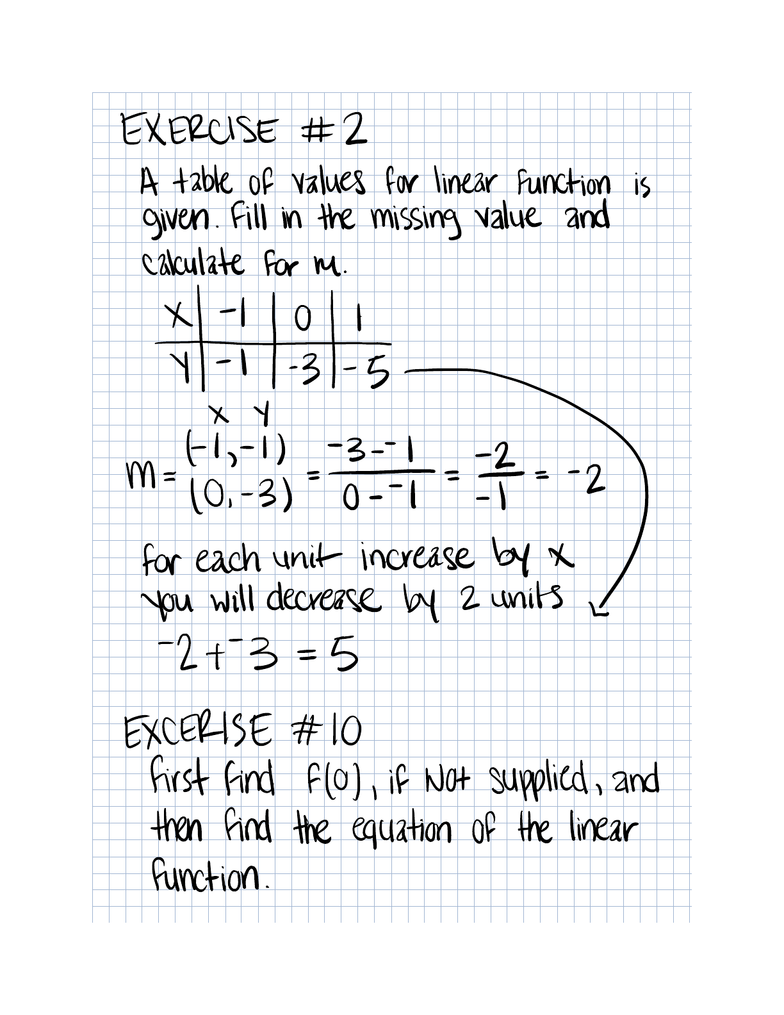 EXERCISE #2
A table of values for linear function is
given. Fill in the missing value and
calculate for m.
X | -1 | 0 | 1
Y | -1 | -3 | -5
X Y
m = (-1,-1) (0,-3) = -3--1 / 0--1 = -2 / -1 = -2
for each unit increase by x
you will decrease by 2 units
-2+-3 = 5
EXCERISE #10
First find f(0), if Not supplied, and
then find the equation of the linear
function.